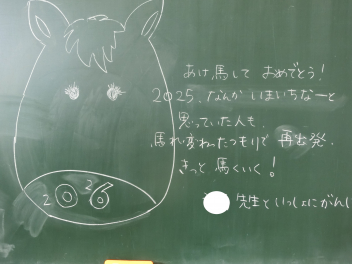 あけ馬して おめでとう!
2025、なんかいまいちなーと
思っていた人も、
馬れ変わったつもりで 再出発.
きっと 馬くいく!
先生といっしょにがん
2026